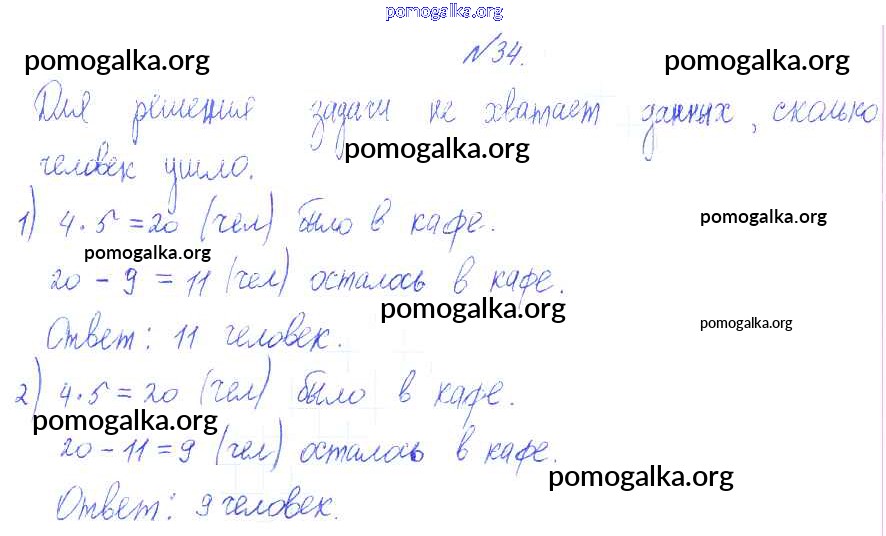 pomogalka.org
№34.
pomogalka.org pomogalka.org
Для решения задачи не хватает данных, сколько
pomogalka.org
человек ушло.
1) 4·5=20 (чел) было в кафе.
pomogalka.org
pomogalka.org
20 - 9 = 11 (чел) осталось в кафе.
pomogalka.org
pomogalka.org
Ответ: 11 человек.
2) 4·5=20 (чел) было в кафе.
pomogalka.org
20 - 11 = 9 (чел) осталось в кафе.
pomogalka.org
Ответ: 9 человек.